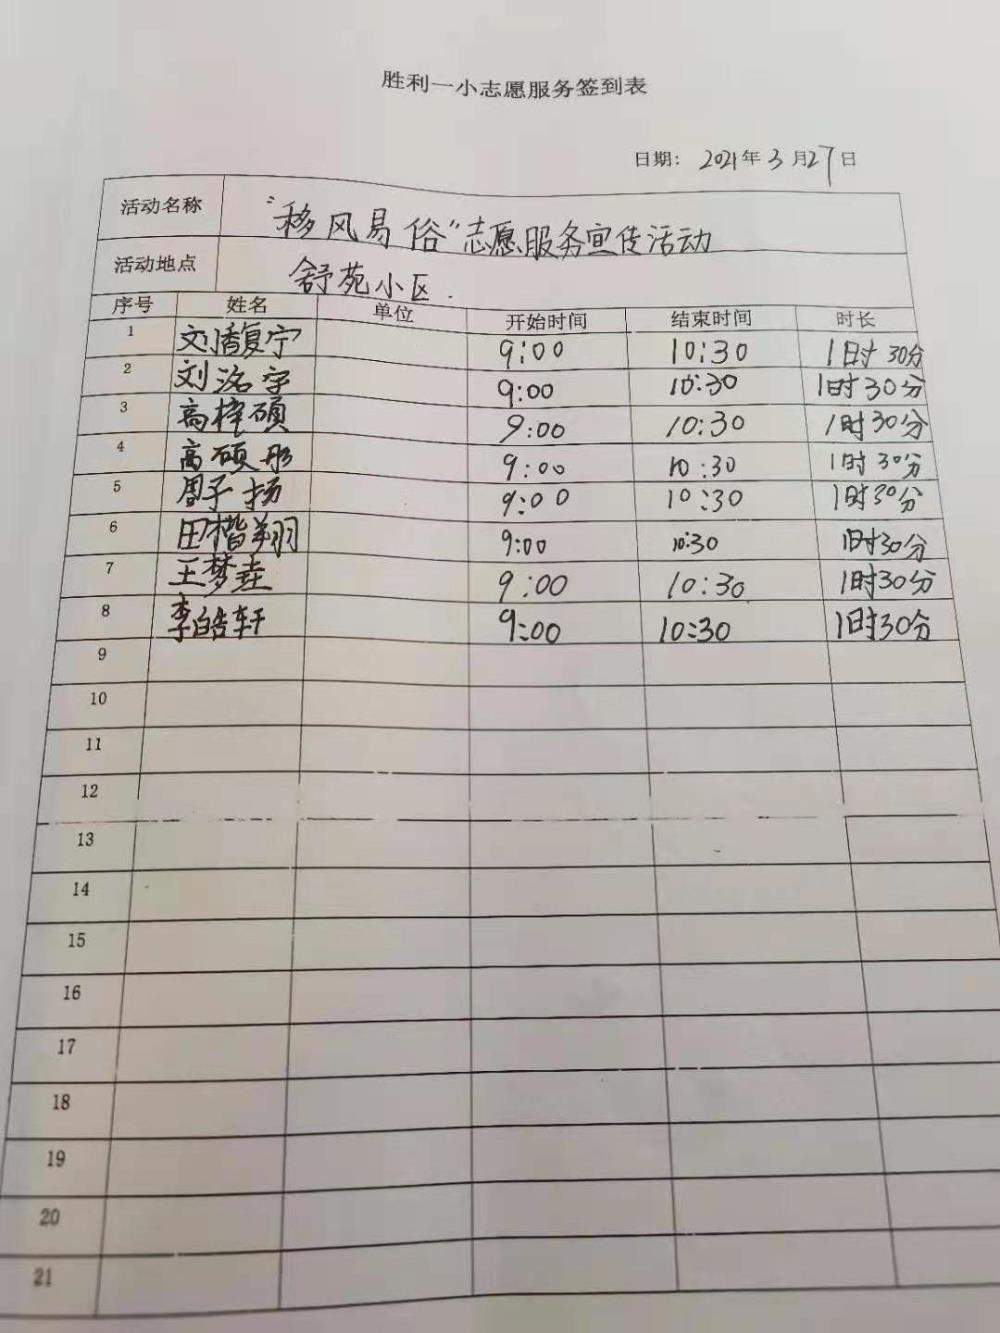 胜利一小志愿服务签到表
日期: 2021年3月27日
活动名称 "移风易俗"志愿服务宣传活动
活动地点 舒苑小区.
序号 姓名 单位 开始时间 结束时间 时长
1 文潘复宁 9:00 10:30 1时30分
2 刘洺宇 9:00 10:30 1时30分
3 高梓硕 9:00 10:30 1时30分
4 高硕彤 9:00 10:30 1时30分
5 周子扬 9:00 10:30 1时30分
6 田楷翔 9:00 10:30 1时30分
7 王梦垚 9:00 10:30 1时30分
8 李皓轩 9:00 10:30 1时30分
9
10
11
12
13
14
15
16
17
18
19
20
21